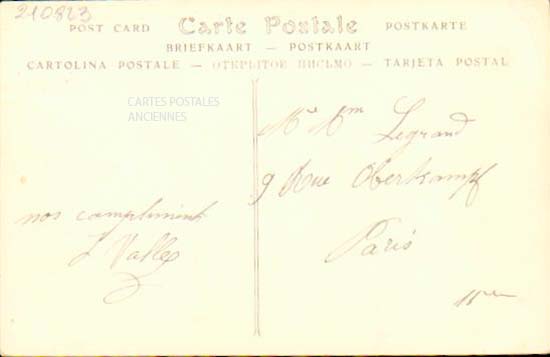 210823
POST CARD Carte Postale POSTKARTE
BRIEFKAART — POSTKAART
CARTOLINA POSTALE — ОТКРЫТОЕ ПИСЬМО — TARJETA POSTAL
CARTES POSTALES
ANCIENNES
nos compliments
L Valles
Mr Mm Legrand
9 Rue Oberkampf
Paris
11me